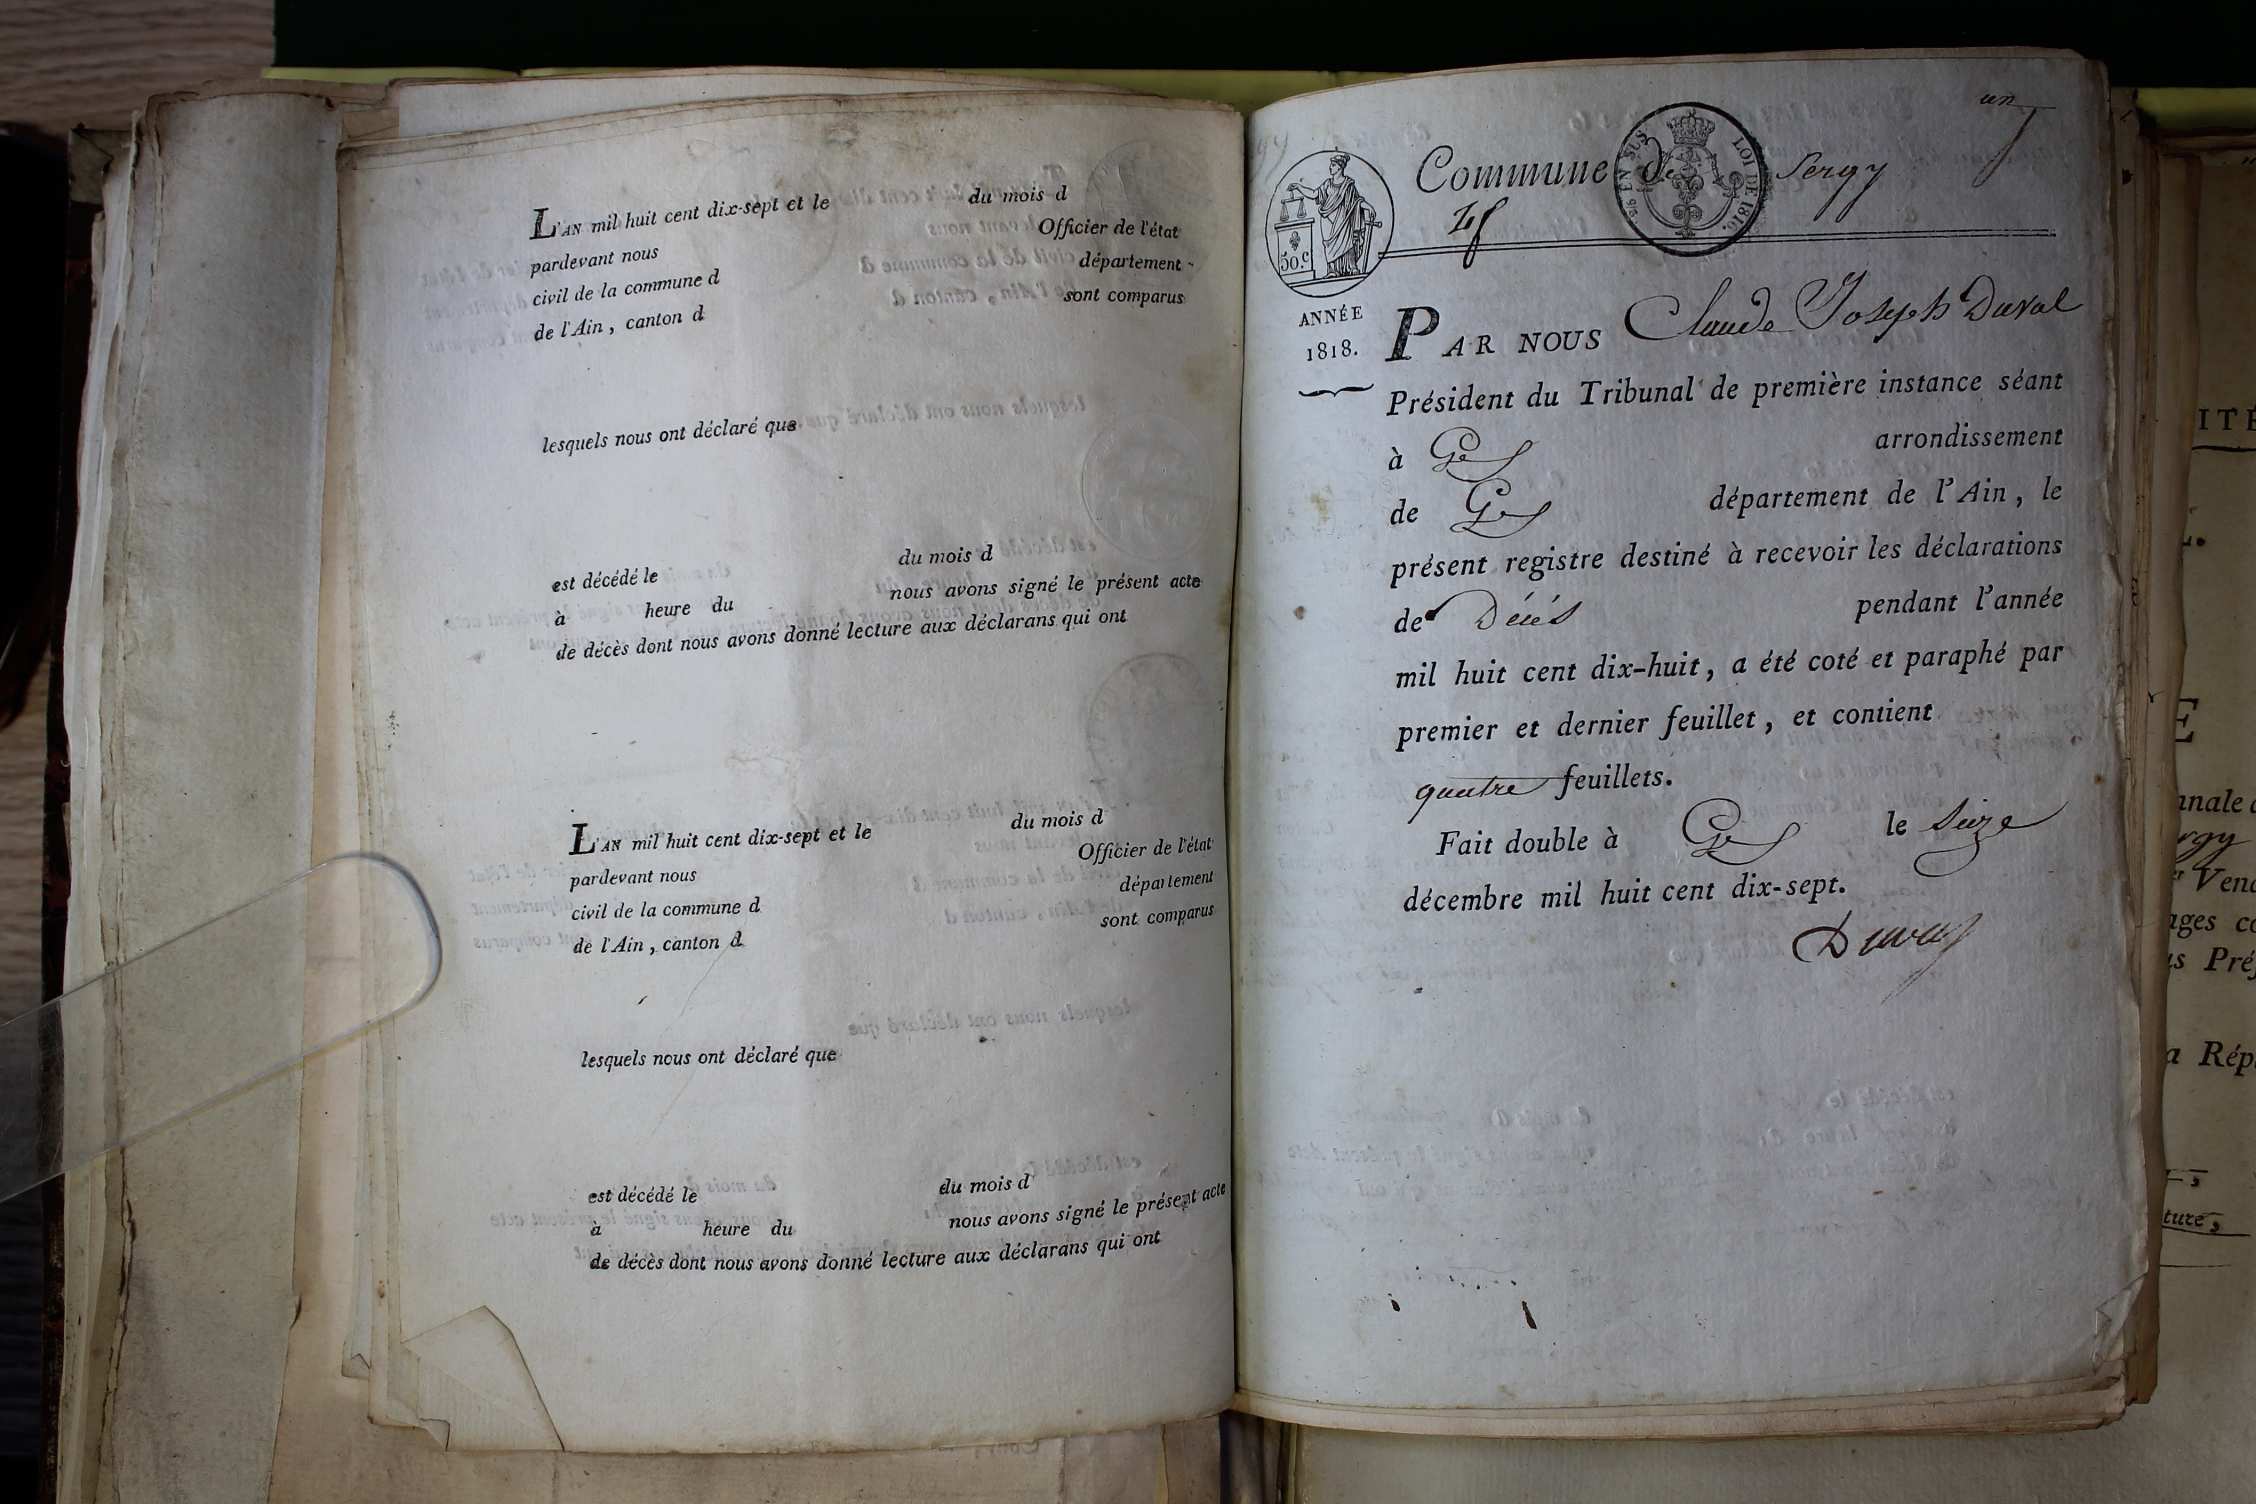 L'AN mil huit cent dix-sept et le du mois d
pardevant nous Officier de l'état
civil de la commune d département
de l'Ain, canton d sont comparus
lesquels nous ont déclaré que
est décédé le du mois d
à heure du nous avons signé le présent acte
de décès dont nous avons donné lecture aux déclarans qui ont
L'AN mil huit cent dix-sept et le du mois d
pardevant nous Officier de l'état
civil de la commune d département
de l'Ain, canton d sont comparus
lesquels nous ont déclaré que
est décédé le du mois d
à heure du nous avons signé le présent acte
de décès dont nous avons donné lecture aux déclarans qui ont
un
Commune de Sergy
EN SUS LOI DE 1816.
50.c
ANNÉE
1818.
PAR NOUS Claude Joseph Duval
Président du Tribunal de première instance séant
à Gex arrondissement
de Gex département de l'Ain, le
présent registre destiné à recevoir les déclarations
de Décés pendant l'année
mil huit cent dix-huit, a été coté et paraphé par
premier et dernier feuillet, et contient
quatre feuillets.
Fait double à Gex le Seize
décembre mil huit cent dix-sept.
Duval
ITÉ
E
nnale
rgy
Ven
ages co
us Pré
a Rép
ture,